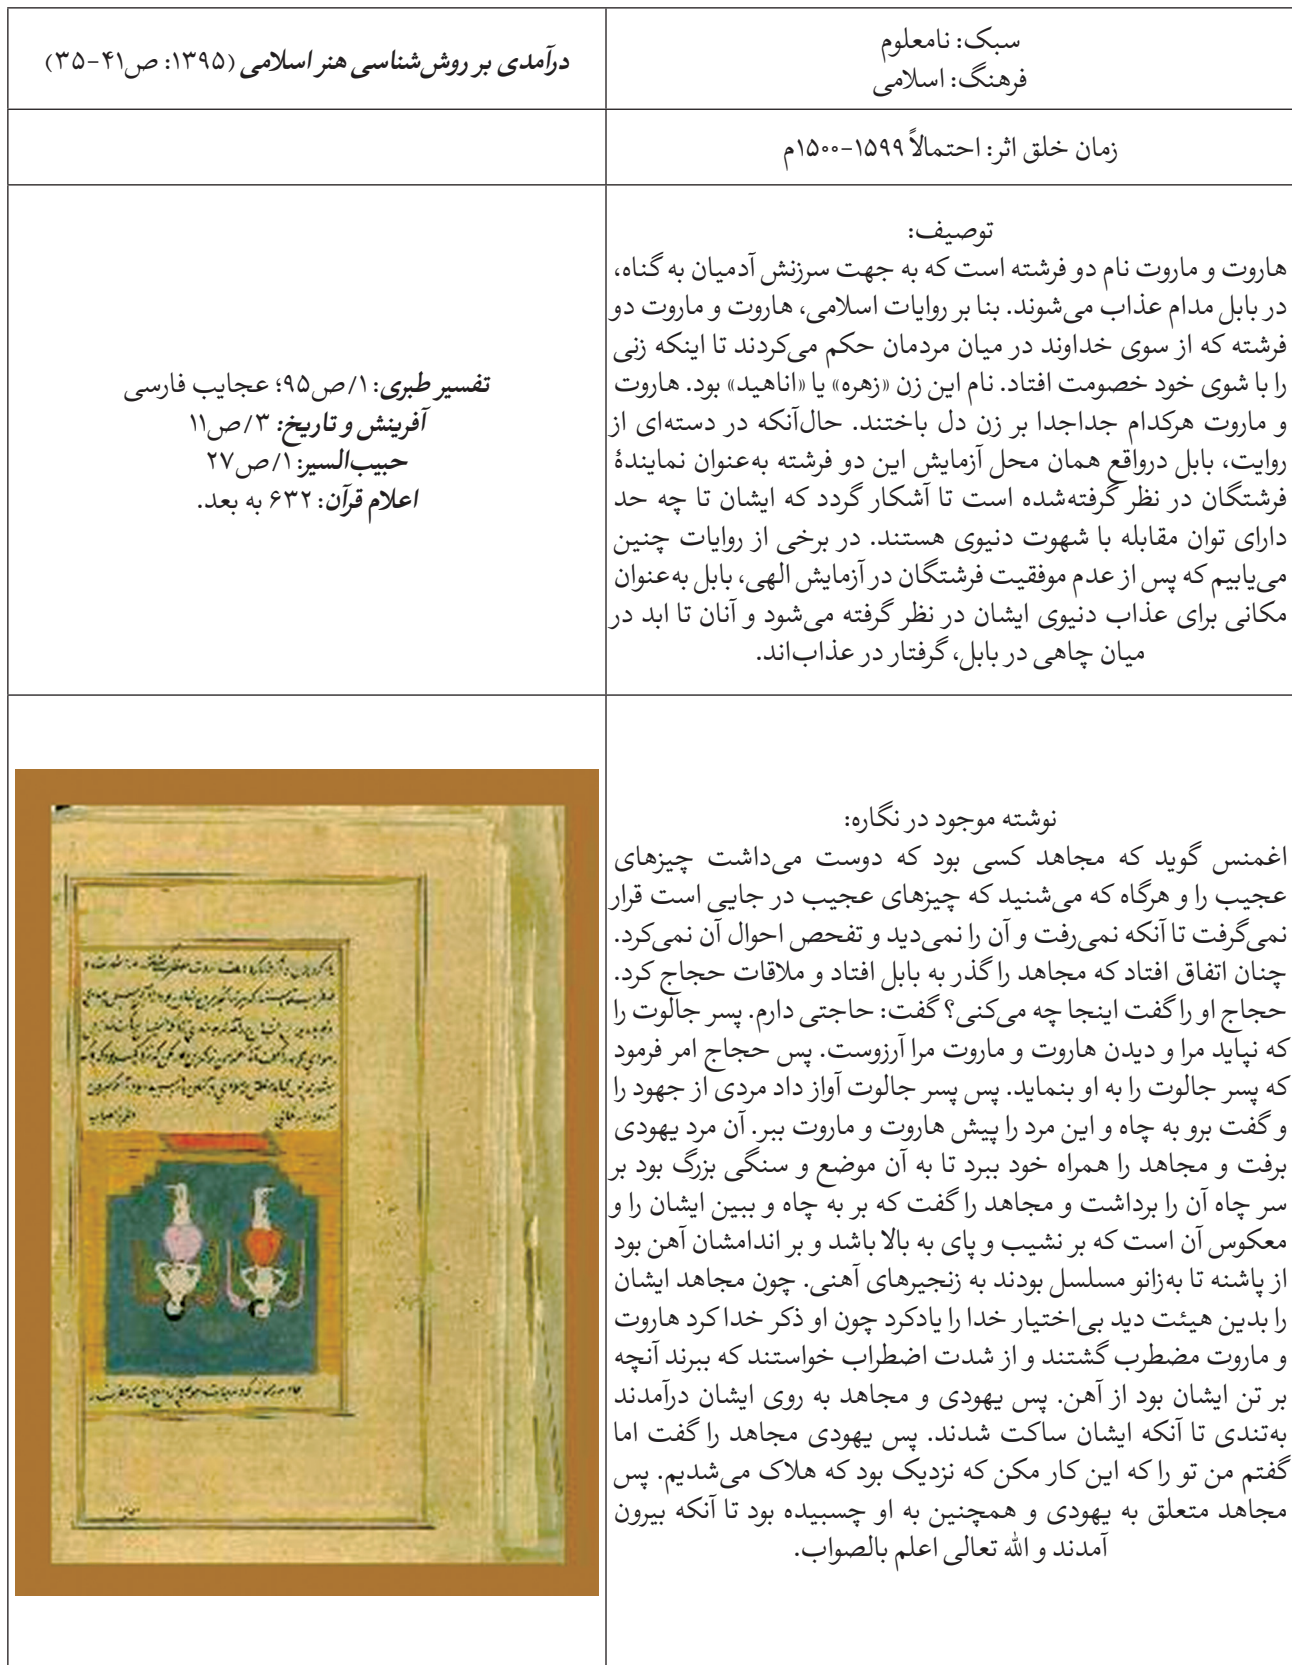 سبک: نامعلوم
فرهنگ: اسلامی
درآمدی بر روش‌شناسی هنر اسلامی (۱۳۹۵: ص۴۱-۳۵)
زمان خلق اثر: احتمالاً ۱۵۹۹-۱۵۰۰م
توصیف:
هاروت و ماروت نام دو فرشته است که به جهت سرزنش آدمیان به گناه،
در بابل مدام عذاب می‌شوند. بنا بر روایات اسلامی، هاروت و ماروت دو
فرشته که از سوی خداوند در میان مردمان حکم می‌کردند تا اینکه زنی
را با شوی خود خصومت افتاد. نام این زن «زهره» یا «اناهید» بود. هاروت
و ماروت هرکدام جداجدا بر زن دل باختند. حال‌آنکه در دسته‌ای از
روایت، بابل درواقع همان محل آزمایش این دو فرشته به‌عنوان نمایندهٔ
فرشتگان در نظر گرفته‌شده است تا آشکار گردد که ایشان تا چه حد
دارای توان مقابله با شهوت دنیوی هستند. در برخی از روایات چنین
می‌یابیم که پس از عدم موفقیت فرشتگان در آزمایش الهی، بابل به‌عنوان
مکانی برای عذاب دنیوی ایشان در نظر گرفته می‌شود و آنان تا ابد در
میان چاهی در بابل، گرفتار در عذاب‌اند.
تفسیر طبری: ۱/ص۹۵؛ عجایب فارسی
آفرینش و تاریخ: ۳/ص۱۱
حبیب‌السیر: ۱/ص۲۷
اعلام قرآن: ۶۳۲ به بعد.
نوشته موجود در نگاره:
اغمنس گوید که مجاهد کسی بود که دوست می‌داشت چیزهای
عجیب را و هرگاه که می‌شنید که چیزهای عجیب در جایی است قرار
نمی‌گرفت تا آنکه نمی‌رفت و آن را نمی‌دید و تفحص احوال آن نمی‌کرد.
چنان اتفاق افتاد که مجاهد را گذر به بابل افتاد و ملاقات حجاج کرد.
حجاج او را گفت اینجا چه می‌کنی؟ گفت: حاجتی دارم. پسر جالوت را
که نپاید مرا و دیدن هاروت و ماروت مرا آرزوست. پس حجاج امر فرمود
که پسر جالوت را به او بنماید. پس پسر جالوت آواز داد مردی از جهود را
و گفت برو به چاه و این مرد را پیش هاروت و ماروت ببر. آن مرد یهودی
برفت و مجاهد را همراه خود ببرد تا به آن موضع و سنگی بزرگ بود بر
سر چاه آن را برداشت و مجاهد را گفت که بر به چاه و ببین ایشان را و
معکوس آن است که بر نشیب و پای به بالا باشد و بر اندامشان آهن بود
از پاشنه تا به‌زانو مسلسل بودند به زنجیرهای آهنی. چون مجاهد ایشان
را بدین هیئت دید بی‌اختیار خدا را یادکرد چون او ذکر خدا کرد هاروت
و ماروت مضطرب گشتند و از شدت اضطراب خواستند که ببرند آنچه
بر تن ایشان بود از آهن. پس یهودی و مجاهد به روی ایشان درآمدند
به‌تندی تا آنکه ایشان ساکت شدند. پس یهودی مجاهد را گفت اما
گفتم من تو را که این کار مکن که نزدیک بود که هلاک می‌شدیم. پس
مجاهد متعلق به یهودی و همچنین به او چسبیده بود تا آنکه بیرون
آمدند و الله تعالی اعلم بالصواب.